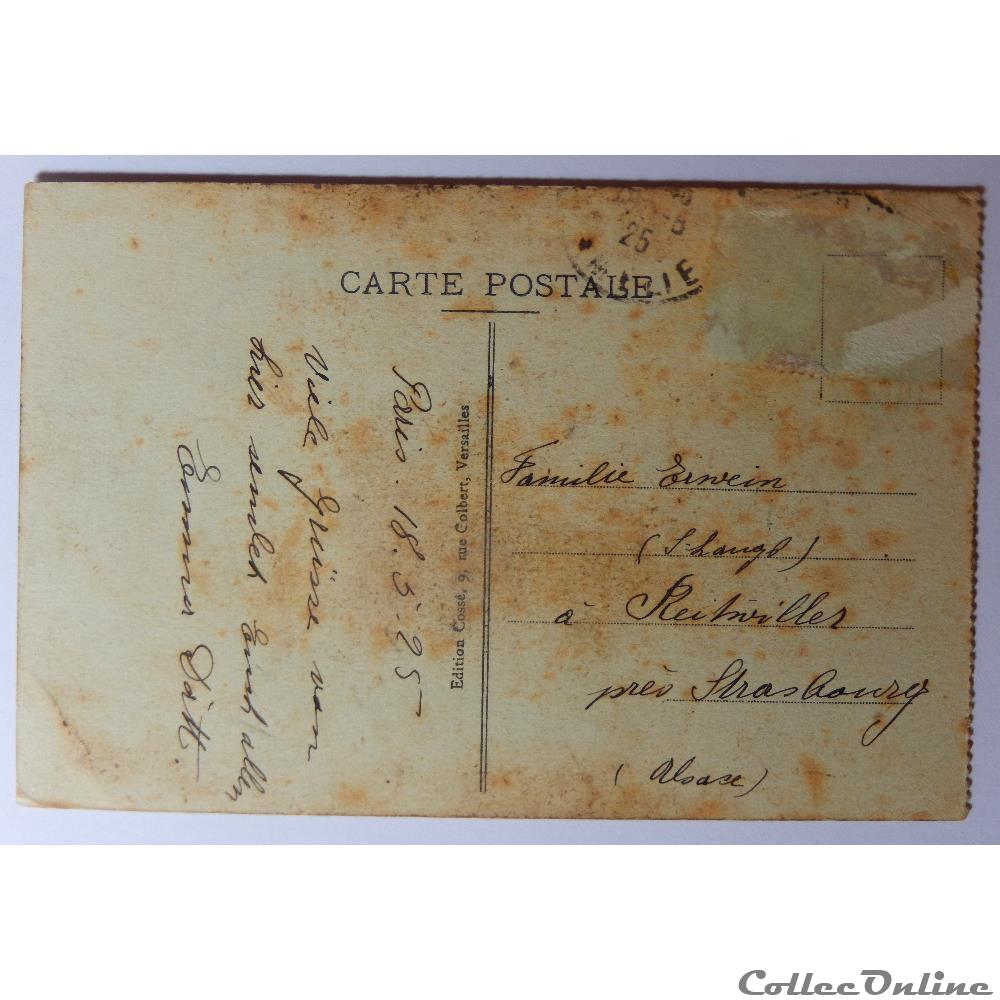 CARTE POSTALE
25
Paris. 18. 5. 25
Viele Grüsse von
hier sendet Euch allen
Emma
Edition Cossé, 9, rue Colbert, Versailles
Familie Erwein
à Reitwiller
près Strasbourg
(Alsace)
CollecOnline